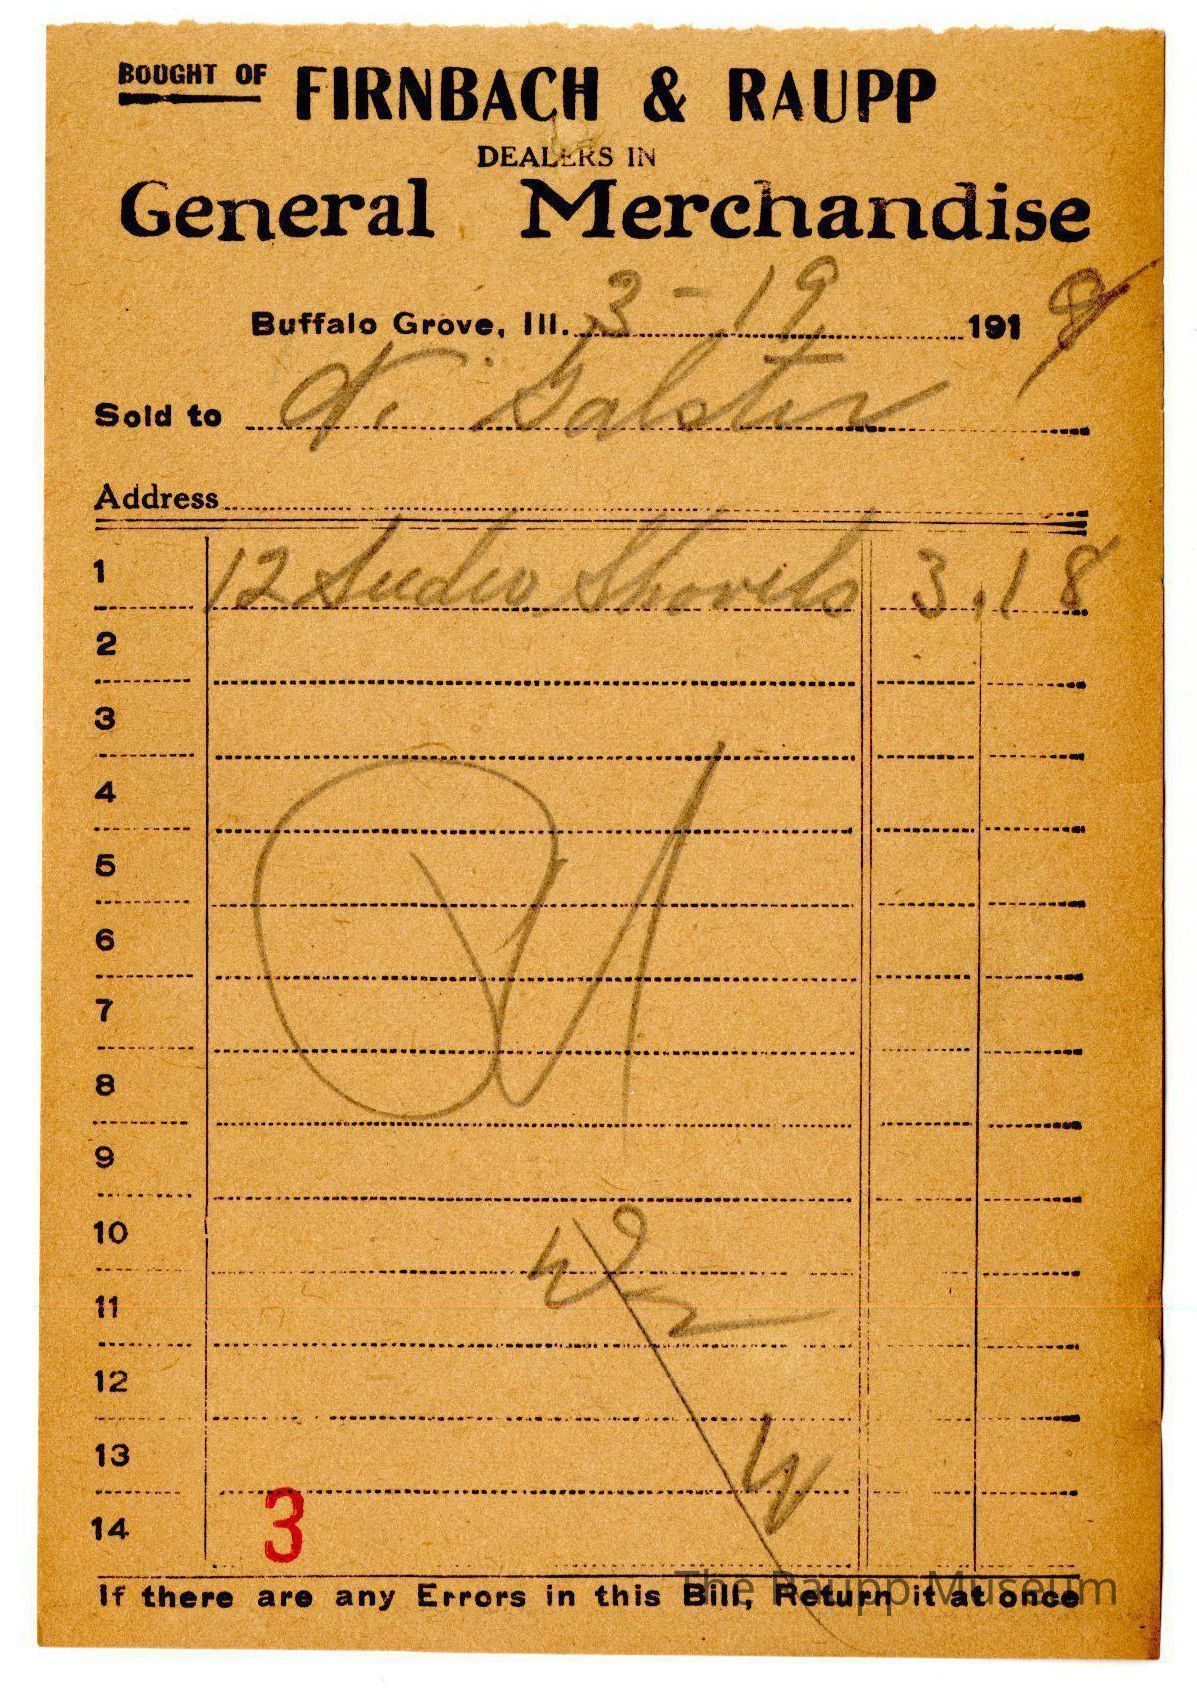 BOUGHT OF FIRNBACH & RAUPP
DEALERS IN
General Merchandise
Buffalo Grove, Ill. 3-19 191
Sold to Galster
Address
1 12 Seeder Shovels 3.18
2
3
4
5
6
7
8
9
10
11
12
13
14 3
If there are any Errors in this Bill, Return it at once
The Raupp Museum